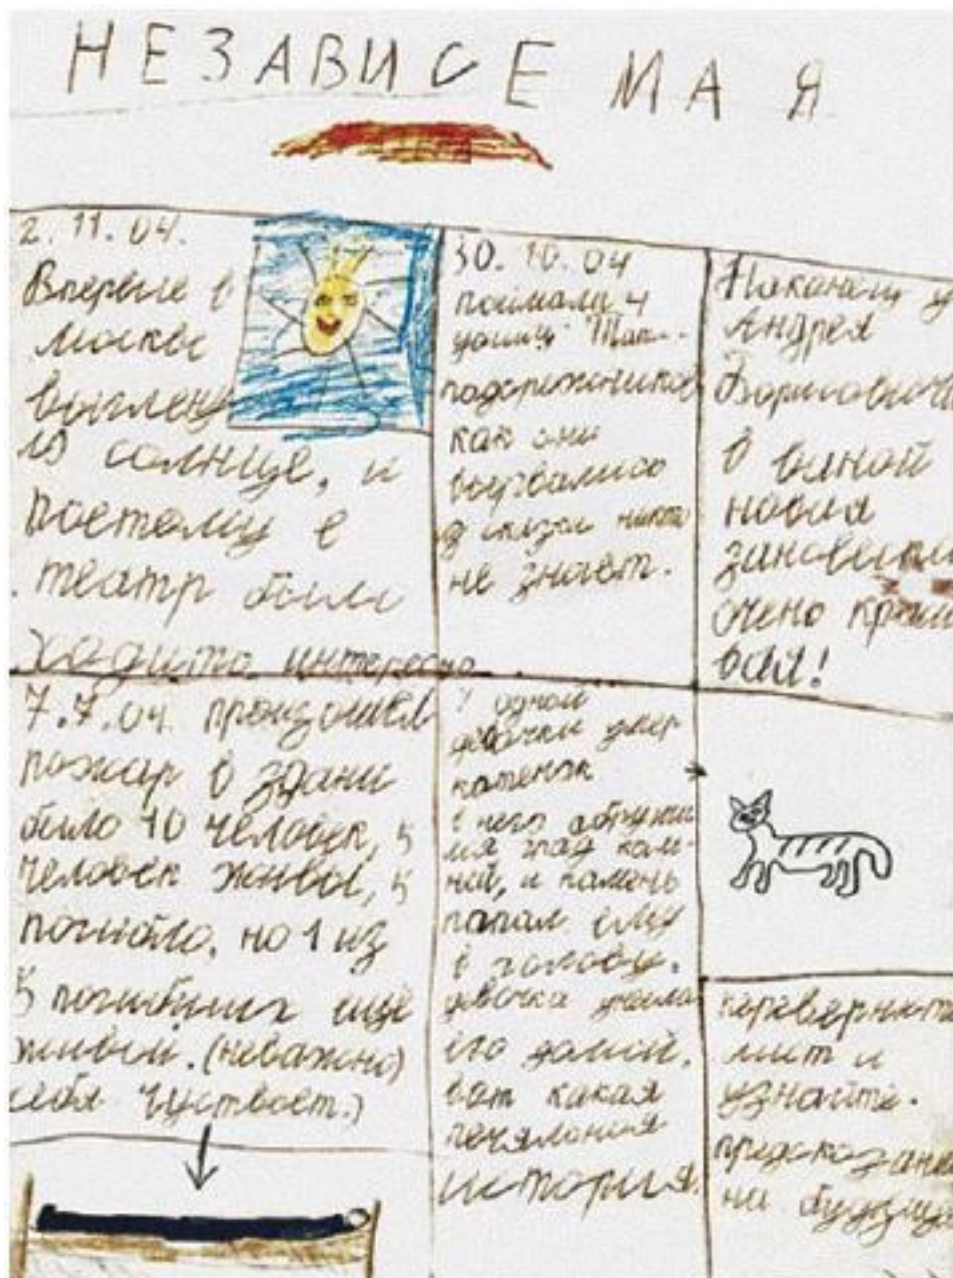 НЕЗАВИСЕМАЯ
2.11.04.
Впервые в
москве
выглену
ло солнце, и
поетому в
театр было
ходить интересно.
30.10.04
поймали 4
подорожников
как они
вырвались
из сказки никто
не знает.
Наконец у
Андрея
Борисовича
в ванной
новая
зановеска
очень краси
вая!
7.7.04. произошёл
пожар в здани
было 10 человек, 5
человек живы, 5
погибло, но 1 из
5 погибших ещё
живой. (неважно)
себя чуствоет.)
У одной
девочки умер
котёнок
в него
град кам-
ней, и камень
папал ему
в голову.
девочка унесла
его домой.
вот какая
печяльния
история.
переверните
лист и
узнайте.
предсказание
на будуще